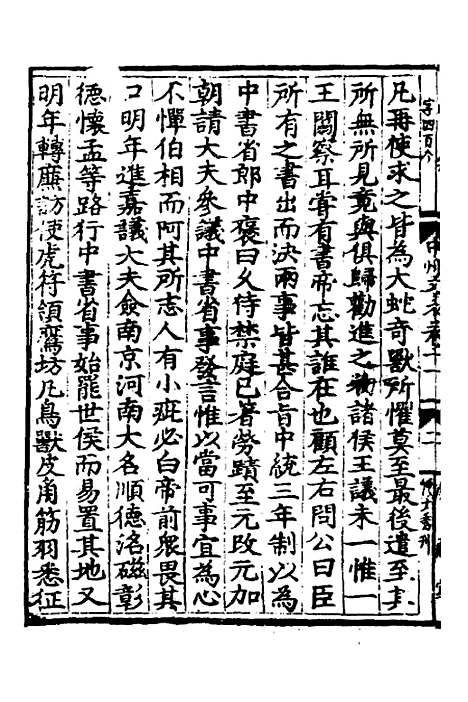 凡再使求之皆為大蛇奇獸所懼莫至最後遣至其
所無所見竟與俱歸勸進之初諸侯王議未一惟一
王闊察耳嘗有書帝忘其誰在也顧左右問公曰臣
所有之書出而決兩事皆甚合旨中統三年制以為
中書省郎中褒曰久侍禁庭已著勞蹟至元改元加
朝請大夫參議中書省事發言惟以當可事宜為心
不憚伯相而阿其所志人有小疵必白帝前眾畏其
口明年進嘉議大夫僉南京河南大名順德洺磁彰
德懷孟等路行中書省事始罷世侯而易置其地又
明年轉廉訪使虎符領鷹坊凡鳥獸皮角筋羽悉征
字四百个
中州文表卷十一
二